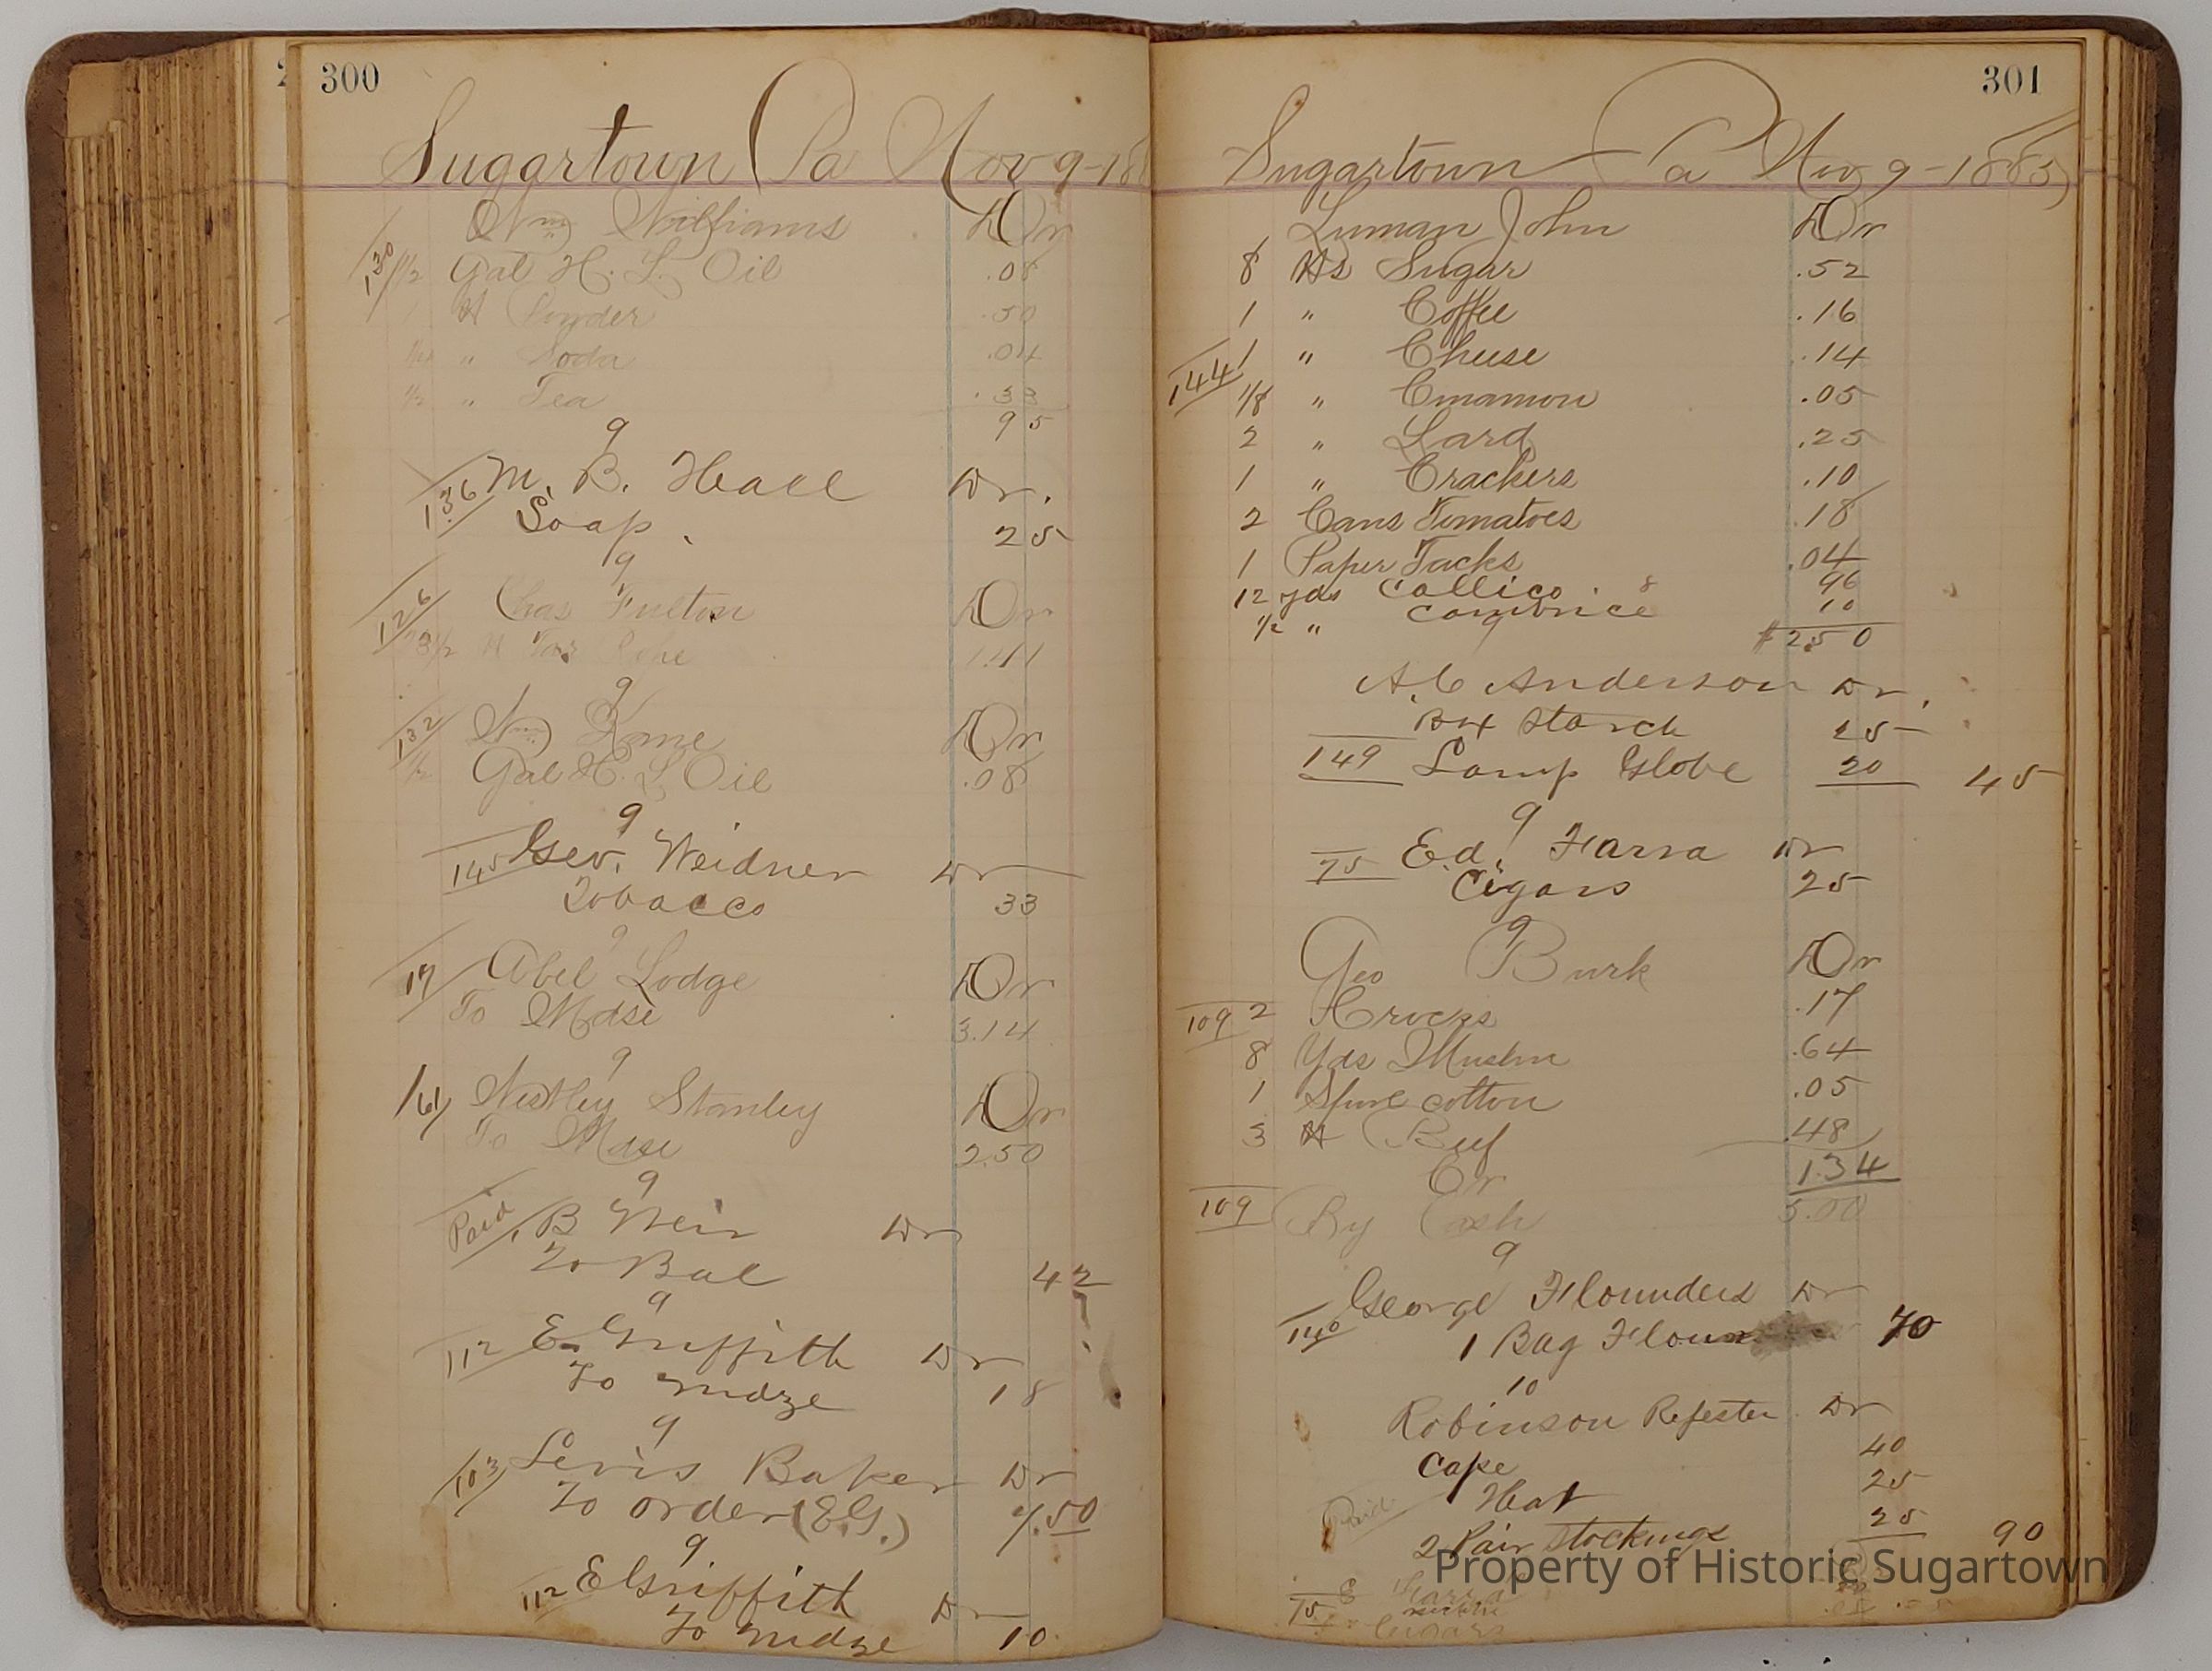 300
Sugartown Pa Nov 9-18
Wm Williams Dr
130 1/2 Gal H. L. Oil .08
1 # .50
1/2 " Soda .04
1/2 " Tea .33
95
9
136 M. B. Heall Dr.
Soap. 25
9
126 Chas Fulton Dr
1.41
9
132 Wm Kane Dr
1/2 Gal H. L. Oil .08
9
145 Geo. Weidner Dr
Tobacco 33
9
17 Abel Lodge Dr
To Mdse 3.14
9
161 Stanley Dr
To Mdse 2.50
9
Paid B Weir Dr
To Bal 42
9
112 E. Griffith Dr
To mdze 18
9
103 Levis Baker Dr
To order (E.G.) .50
9
112 E Griffith Dr
To mdze 10
301
Sugartown Pa Nov 9-1885
Luman John Dr
8 #s Sugar .52
1 " Coffee .16
144 1 " Cheese .14
1/8 " Cinamon .05
2 " Lard .25
1 " Crackers .10
2 Cans Tomatoes .18
1 Paper Tacks .04
12 yds Callico 8 96
1/2 " Cambrice 10
9 $2.50
A. C Anderson Dr.
Box Starch 25
149 Lamp Globe 20 45
9
75 Ed. Farra Dr
Cigars 25
9
Geo Burk Dr
109 2 .17
8 Yds Muslin .64
1 Spool cotton .05
3 # Beef .48
Cr 1.34
109 By Cash 5.00
9
George Flounders Dr
140 1 Bag Flour 70
10
Robinson Dr
Cape 40
Hat 25
Paid 2 Pair Stockings 25 90
75 E Farra
Cigars
Property of Historic Sugartown